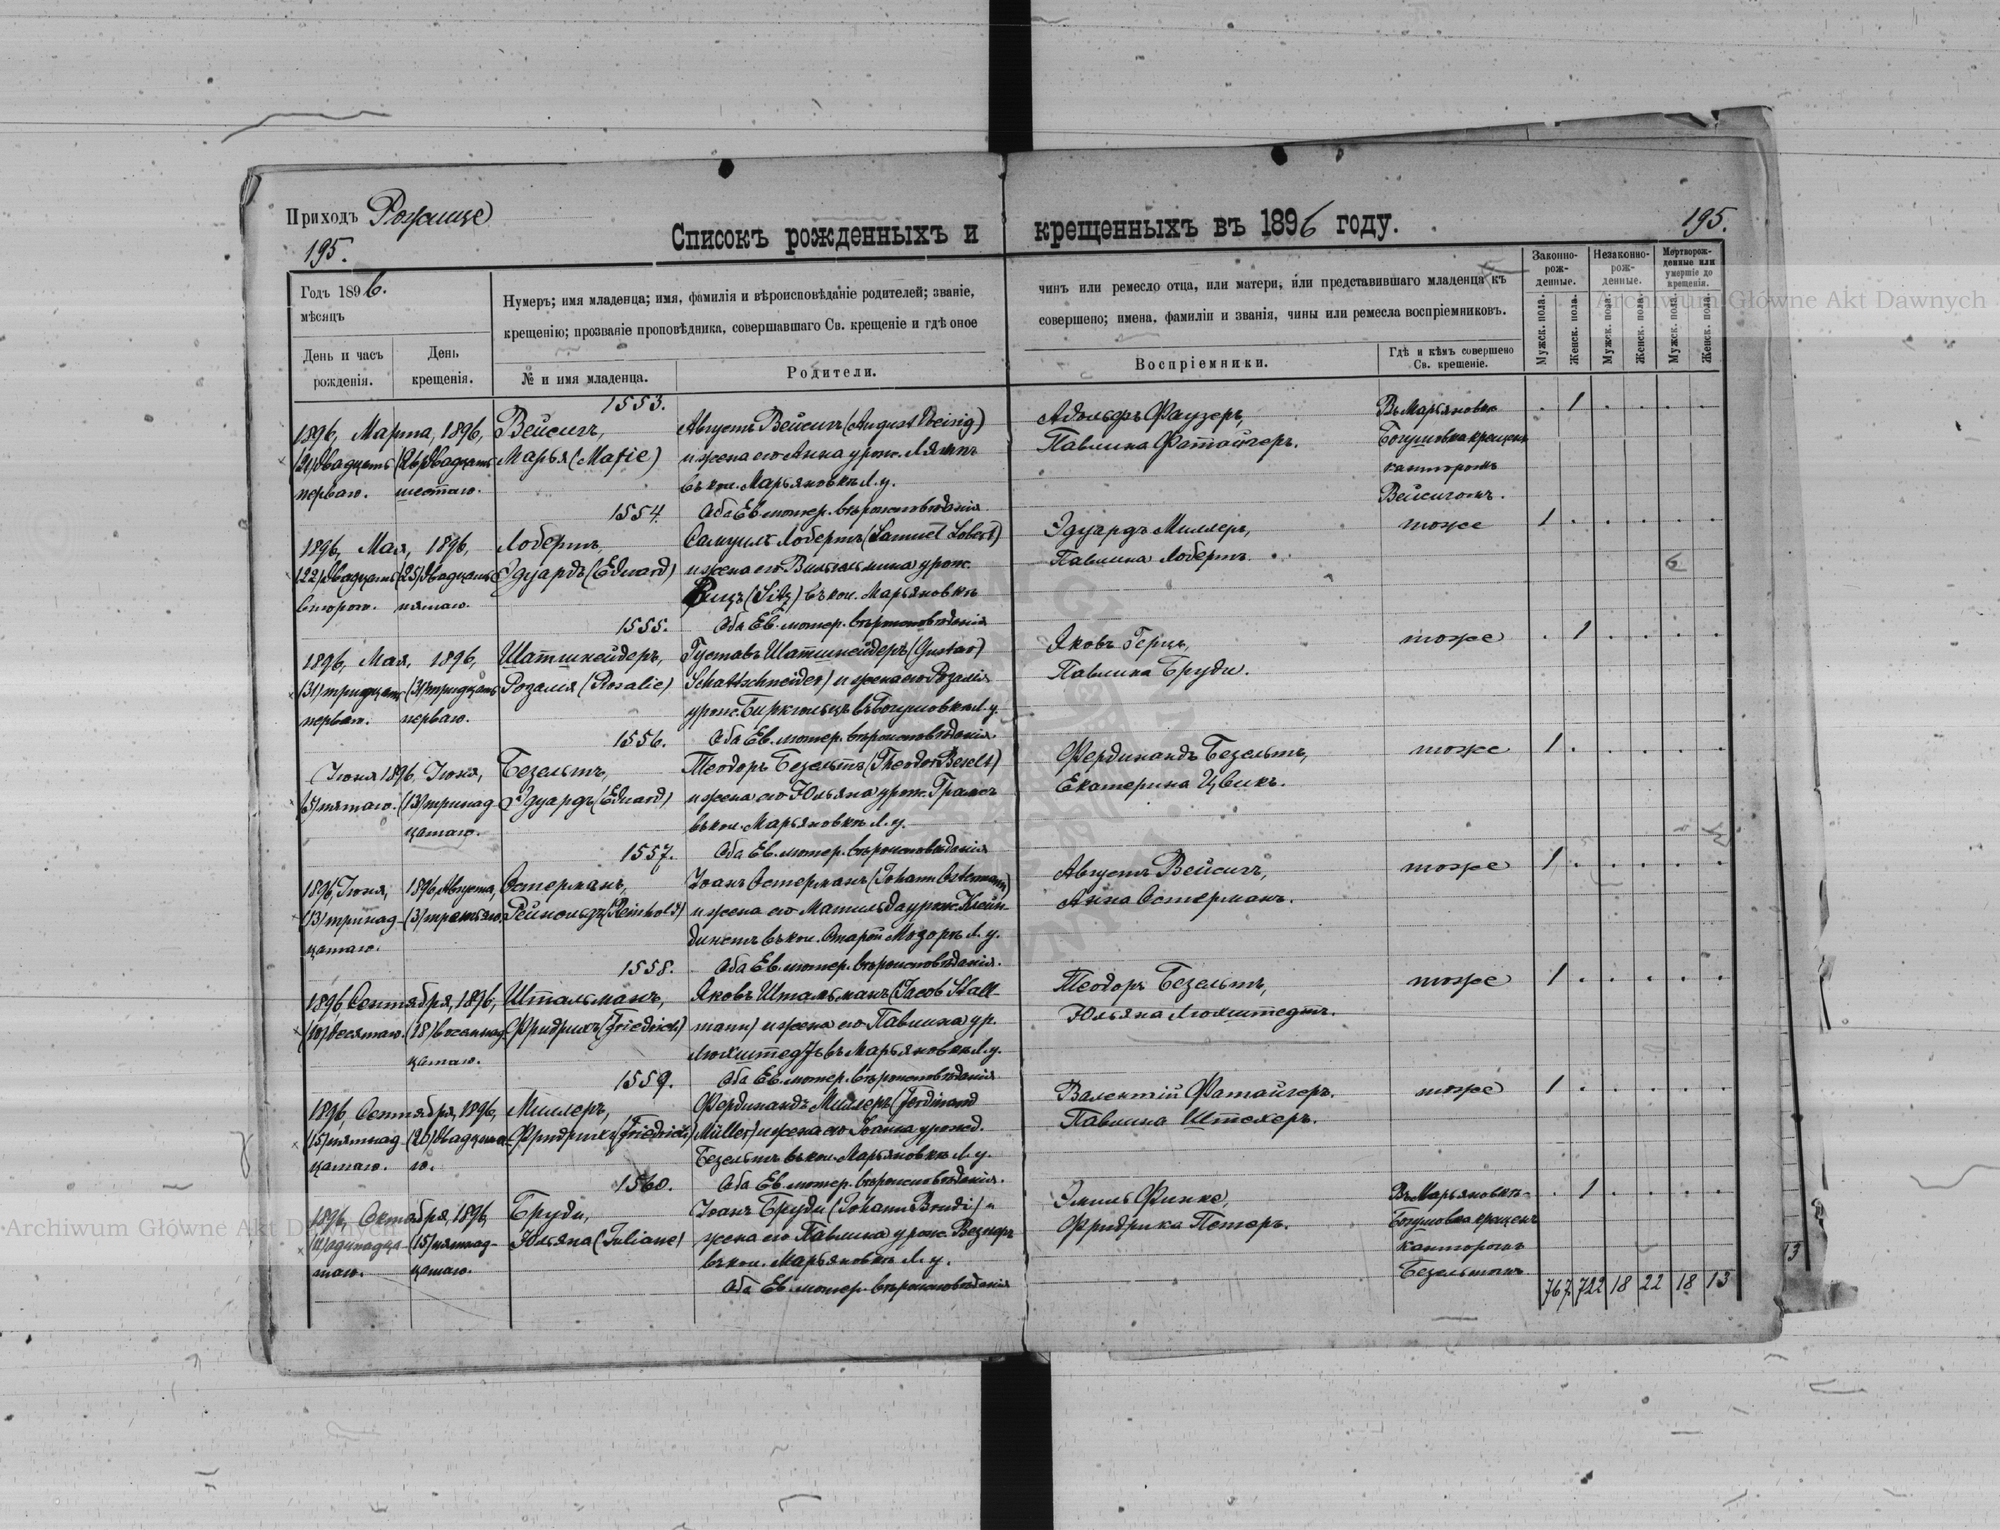 Приходъ Рожище
195.
195.
Списокъ рожденныхъ и крещенныхъ въ 1896 году.
Годъ 1896.
мѣсяцъ
День и часъ рожденія.
День крещенія.
Нумеръ; имя младенца; имя, фамилія и вѣроисповѣданіе родителей; званіе,
чинъ или ремесло отца, или матери, или представившаго младенца къ
крещенію; прозваніе проповѣдника, совершавшаго Св. крещеніе и гдѣ оное
совершено; имена, фамиліи и званія, чины или ремесла воспріемниковъ.
№ и имя младенца.
Родители.
Воспріемники.
Гдѣ и кѣмъ совершено
Св. крещеніе.
Законно-рож-денные.
Незаконно-рож-денные.
Мертворож-денные или умершіе до крещенія.
Мужск. пола.
Женск. пола.
Мужск. пола.
Женск. пола.
Мужск. пола.
Женск. пола.
1553.
1896, Марта, 1896,
(21) двадцать (26) двадцать
перваго. шестаго.
Вейсигъ,
Марья (Marie)
Августъ Вейсигъ (August Weisig)
и жена его Анна урож. Лямъ
въ кол. Марьяновкѣ Л. у.
Оба Ев. лютер. вѣроисповѣданія
Адольфъ Фаузеръ,
Павлина Фатайгеръ.
Въ Марьяновкѣ
Богушовка крещенъ
канторомъ
Вейсигомъ.
. 1 . . . .
1554.
1896, Мая, 1896,
(22) двадцать (25) двадцать
второго. пятаго.
Лобертъ,
Эдуардъ (Eduard)
Самуилъ Лобертъ (Samuel Lobert)
и жена его Вильгельмина урож.
Зицъ (Sitz) въ кол. Марьяновкѣ
Оба Ев. лютер. вѣроисповѣданія
Эдуардъ Миллеръ,
Павлина Лобертъ.
тоже
1 . . . . .
6
1555.
1896, Мая, 1896,
(31) тридцать (31) тридцать
перваго. перваго.
Шатшнейдеръ,
Розалія (Rosalie)
Густавъ Шатшнейдеръ (Gustav
Schattschneider) и жена его Розалія
урож. Биркгольцъ въ Богушовкѣ Л. у.
Оба Ев. лютер. вѣроисповѣданія.
Яковъ Герцъ,
Павлина Бруди.
тоже
. 1 . . . .
1556.
Іюня 1896, Іюня,
(5) пятаго. (13) тринад-
цатаго.
Безельтъ,
Эдуардъ (Eduard)
Теодоръ Безельтъ (Theodor Beselt)
и жена его Юльяна урож.
въ кол. Марьяновкѣ Л. у.
Оба Ев. лютер. вѣроисповѣданія
Фердинандъ Безельтъ,
Екатерина Цвикъ.
тоже
1 . . . . .
1557.
1896, Іюня, 1896 Августа,
(13) тринад- (3) третьяго.
цатаго.
Остерманъ,
Рейнольдъ (Reinhold)
Іоанъ Остерманъ (Johann Ostermann)
и жена его Матильда урож. Клейн-
динстъ въ кол. Старой Мезоркѣ Л. у.
Оба Ев. лютер. вѣроисповѣданія.
Августъ Вейсигъ,
Анна Остерманъ.
тоже
1 . . . . .
1558.
1896, Сентября, 1896,
(10) десятаго. (18) восемнад-
цатаго.
Штальманъ,
Фридрихъ (Friedrich)
Яковъ Штальманъ (Jacob Stall-
mann) и жена его Павлина ур.
Люхштедтъ въ Марьяновкѣ Л. у.
Оба Ев. лютер. вѣроисповѣданія
Теодоръ Безельтъ,
Юльяна Люхштедтъ.
тоже
1 . . . . .
1559.
1896, Сентября, 1896,
(15) пятнад- (20) двадцата-
цатаго. го.
Миллеръ,
Фридрихъ (Friedrich)
Фердинандъ Миллеръ (Ferdinand
Müller) и жена его Іоанна урожд.
Безельтъ въ кол. Марьяновкѣ Л. у.
Оба Ев. лютер. вѣроисповѣданія.
Валентій Фатайгеръ.
Павлина Штехеръ.
тоже
1 . . . . .
1560.
1896, Октября, 1896,
(11) одинадца- (15) пятнад-
таго. цатаго.
Бруди,
Юльяна (Juliane)
Іоанъ Бруди (Johann Brudi) и
жена его Павлина урож. Везнеръ
въ кол. Марьяновкѣ Л. у.
Оба Ев. лютер. вѣроисповѣданія
Эмиль Финке,
Фридрика Петеръ.
Въ Марьяновкѣ-
Богушовка крещенъ
канторомъ
Безельтомъ
. 1 . . . .
767. 722 18 22 18 13
13
Archiwum Główne Akt Dawnych
Archiwum Główne Akt Dawnych